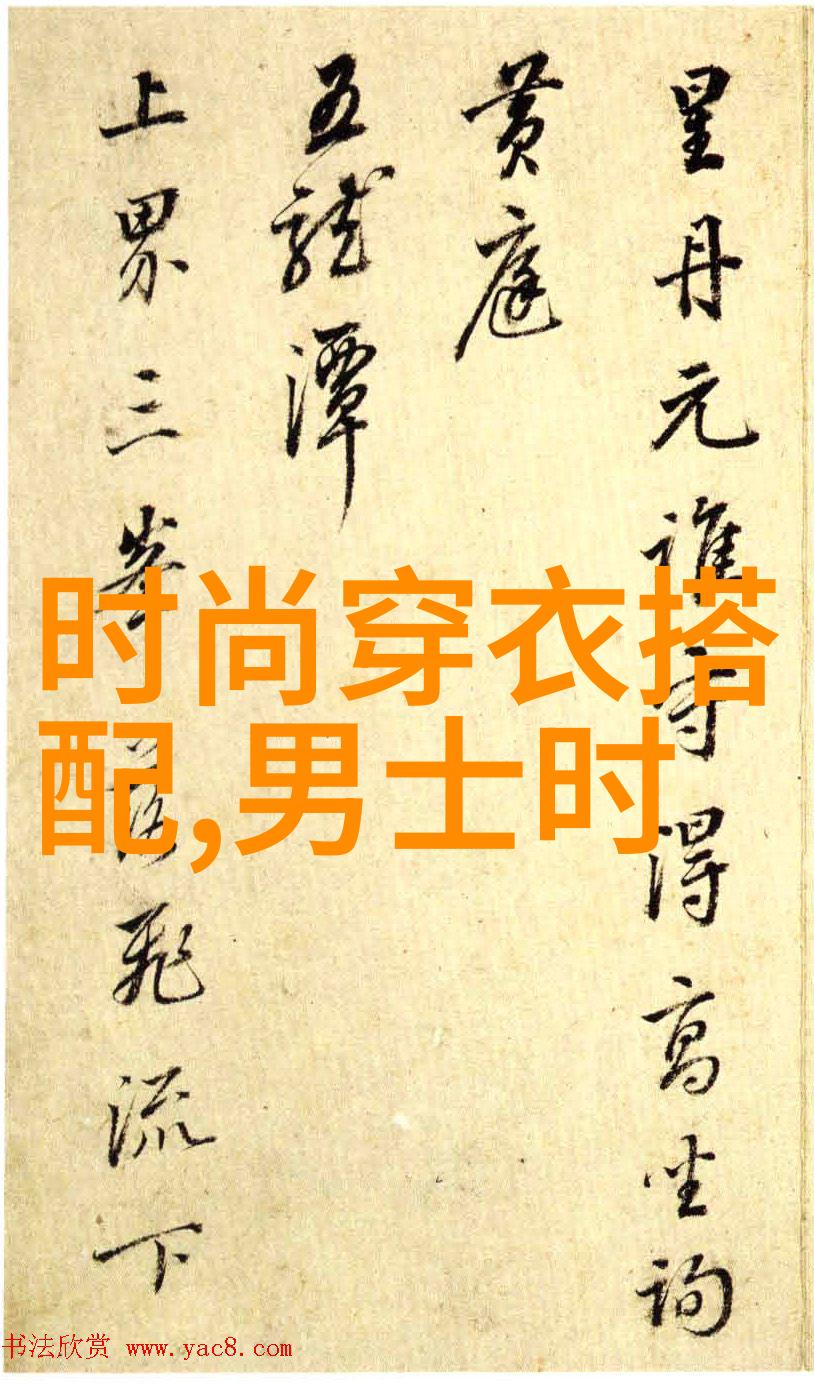 星丹元誰守得高坐詢
黄庭
五龍潭
上界三峯落飛流下
时尚穿衣搭
配,男士时
书法欣赏 www.yac8.com